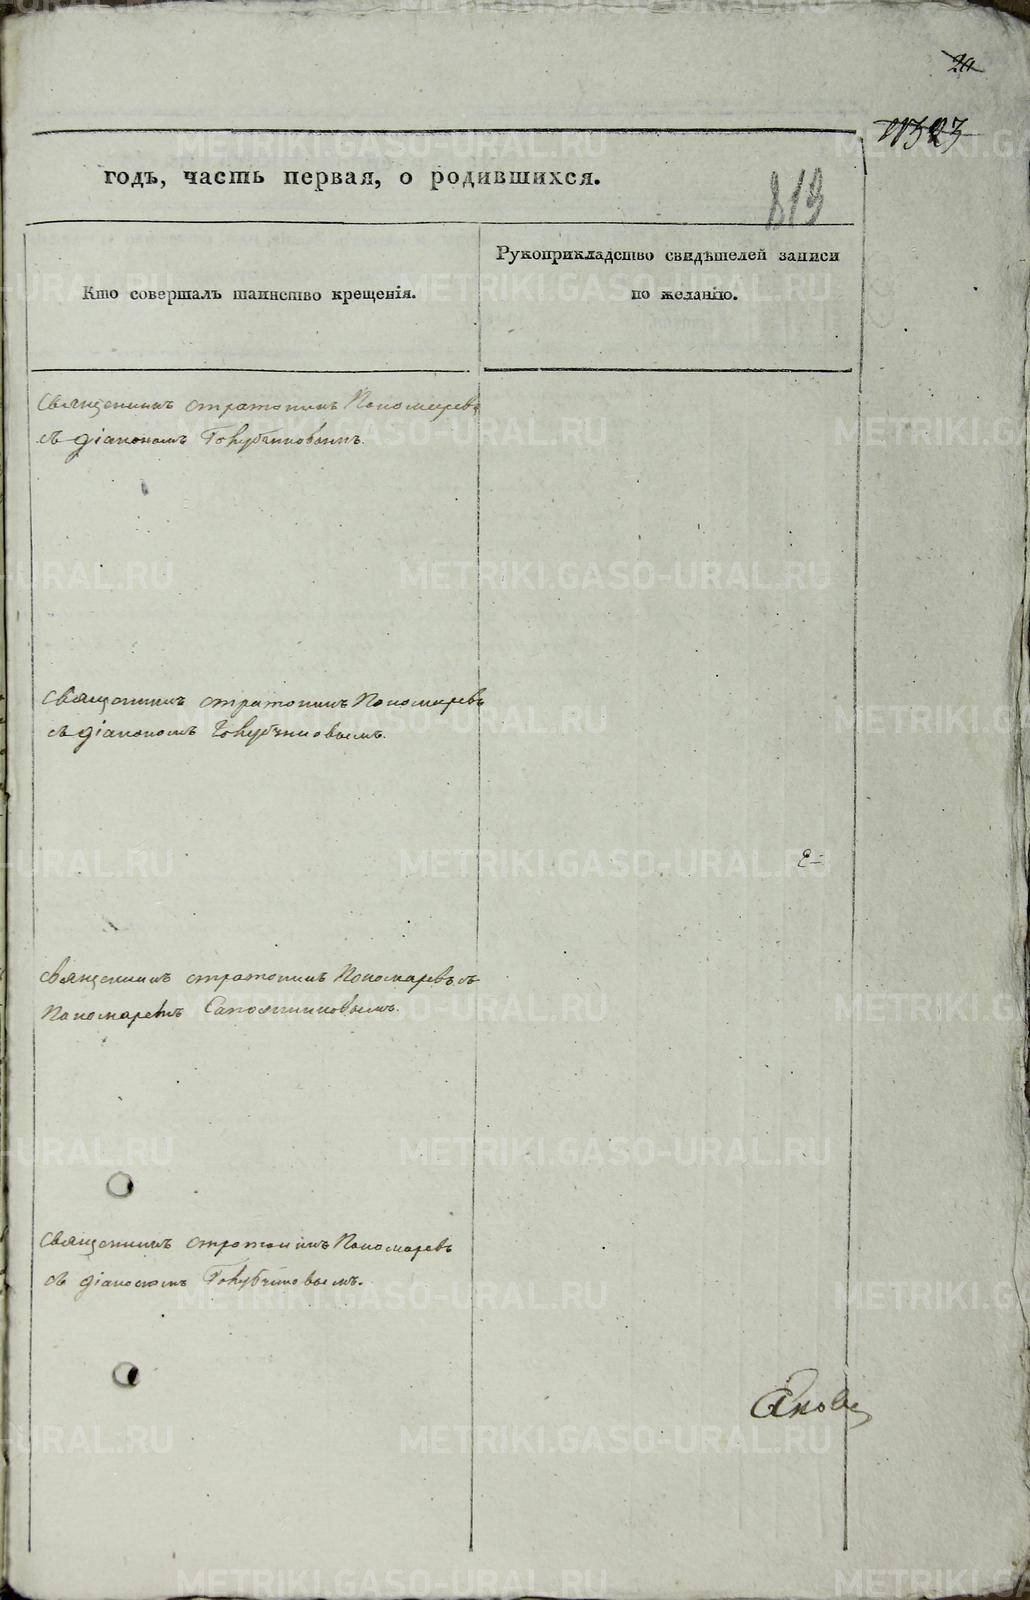 годъ, часть первая, о родившихся.
813
Кто совершалъ таинство крещенія.
Рукоприкладство свидѣтелей записи
по желанію.
священникъ стратоникъ Пономаревъ
съ діакономъ Голубчиковымъ.
священникъ стратоникъ Пономаревъ
съ діакономъ Голубчиковымъ.
священникъ стратоникъ Пономаревъ съ
Пономаремъ Сапожниковымъ.
священникъ стратоникъ Пономаревъ
съ діакономъ Голубчиковымъ.
METRIKI.GASO-URAL.RU